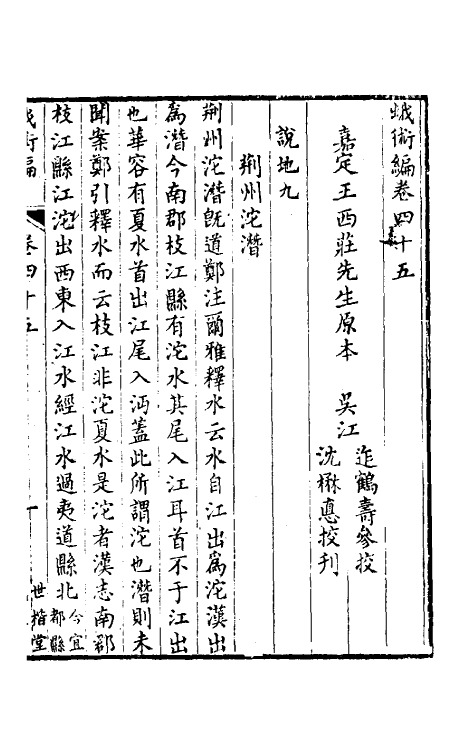 蛾術編卷四十五
嘉定王西莊先生原本　吳江
迮鶴壽參挍
沈楙悳挍刊
說地九
荆州沱潛
荆州沱潛旣道鄭注爾雅釋水云水自江出爲沱漢出
爲潛今南郡枝江縣有沱水其尾入江耳首不于江出
也華容有夏水首出江尾入沔蓋此所謂沱也潛則未
聞案鄭引釋水而云枝江非沱夏水是沱者漢志南郡
枝江縣江沱出西東入江水經江水過夷道縣北今宜
都縣
蛾術編　卷四十五　一　世楷堂